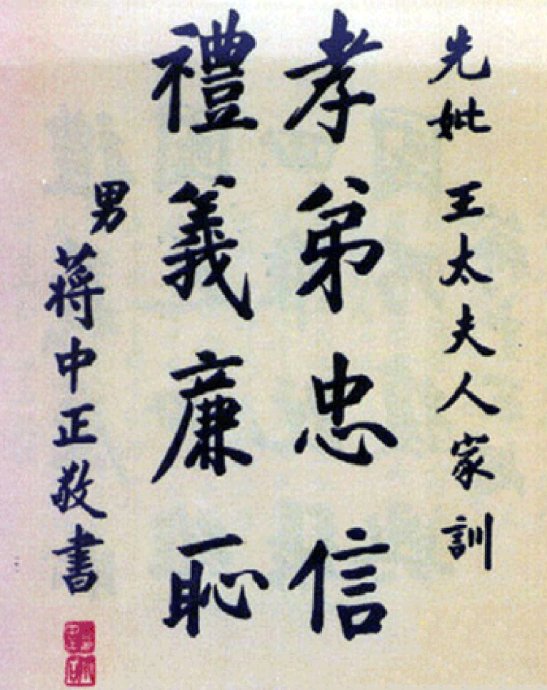 先妣 王太夫人家訓
孝弟忠信
禮義廉恥
男 蔣中正敬書